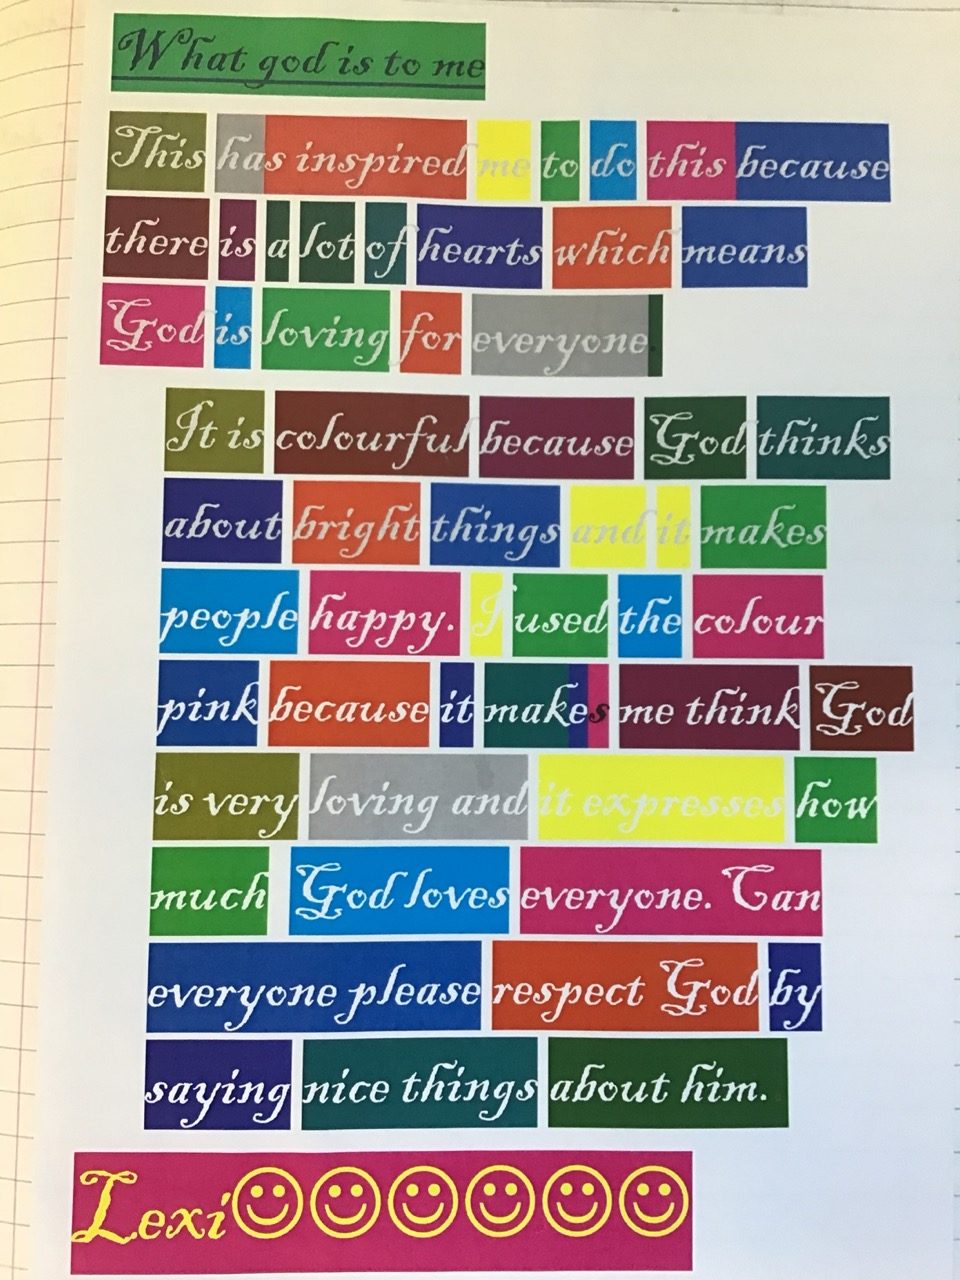 What god is to me
This has inspired me to do this because
there is a lot of hearts which means
God is loving for everyone.
It is colourful because God thinks
about bright things and it makes
people happy. I used the colour
pink because it makes me think God
is very loving and it expresses how
much God loves everyone. Can
everyone please respect God by
saying nice things about him.
Lexi☺☺☺☺☺☺